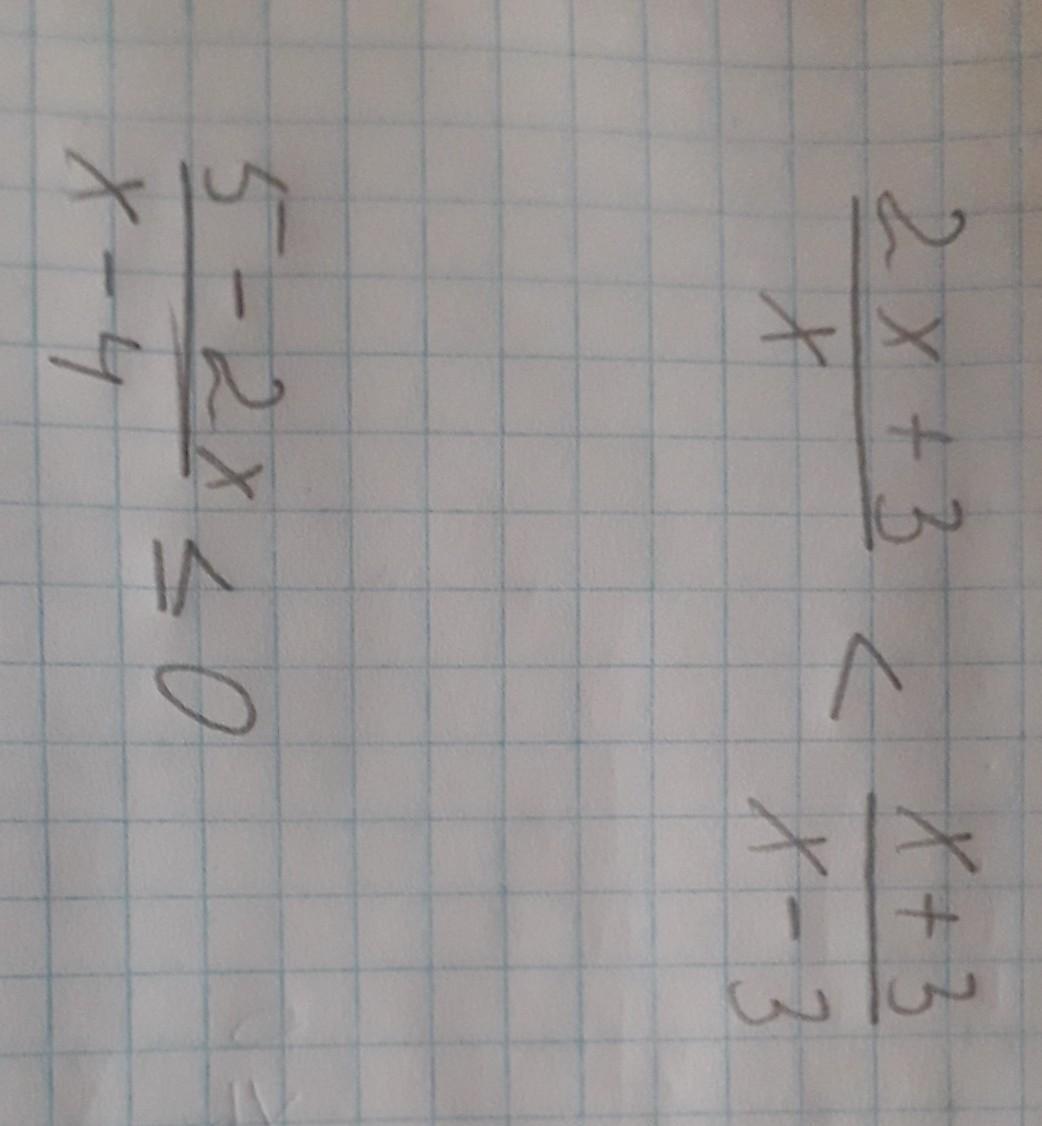 2x + 3 / x < x + 3 / x - 3
5 - 2x / x - 4 ≤ 0